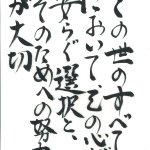 この世のすべて
において己の心が
安らぐ選択と、
そのためへの努力
が大切